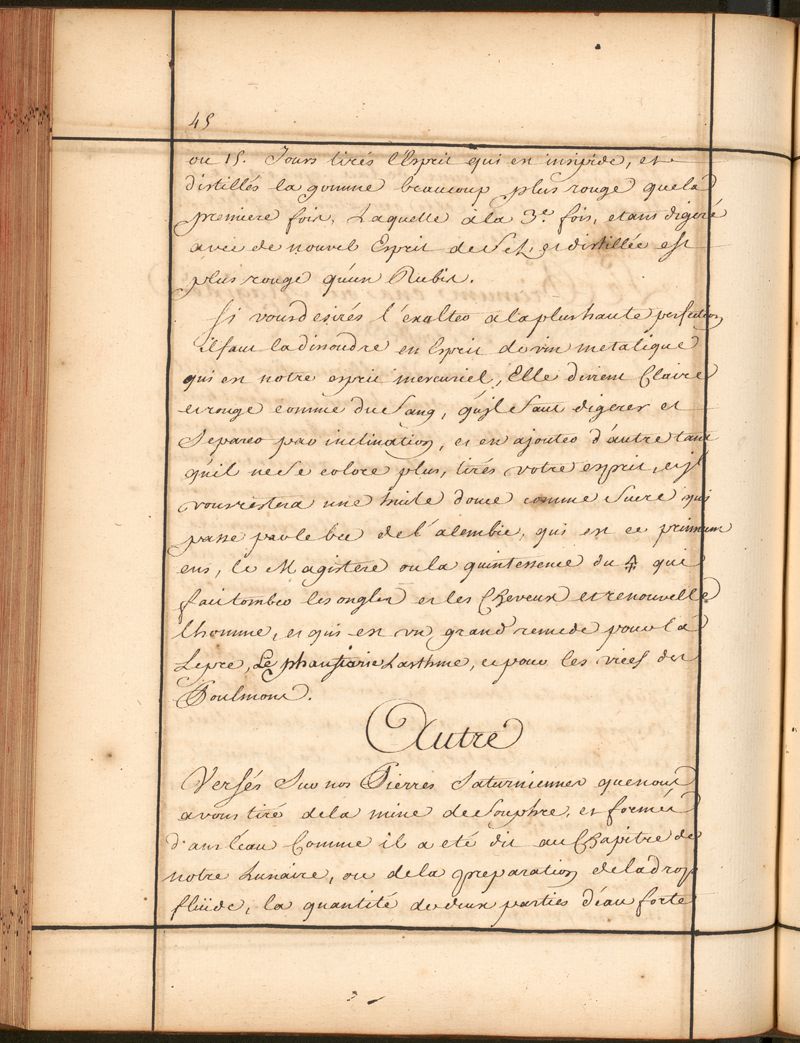 45
ou 15. Jours tirés l'Esprit qui est insipide, et
distillés la gomme beaucoup plus rouge que la
premiere fois, Laquelle a la 3.e fois, etans digeré
avec de nouvel Esprit de Sel, et distillée est
plus rouge qu'un Rubis.
Si vous desirés l'exalter a la plus haute perfection
il faut la dissoudre en Esprit de vin metalique
qui est notre esprit mercuriel, Elle divient Claire
et rouge comme du Sang, qu'jl faut digerer et
Separer par inclination, et en ajouter d'autre tant
qu'il ne Se colore plus, tirés votre esprit, et jl
vous restera une huile douce comme Sucre qui
passe par le bec de l'alembic, qui est ce primum
ens, le Magistere ou la quintessence du 🜍 qui
fait tomber les ongles et les Cheveux et renouvelle
l'homme, et qui est un grand remede pour la
Lepre, Lephantiasie Lasthme, et pour les vices des
Poulmons.
Autre
Versés Sur nos Pierres Saturniennes que nous
avons tiré de la mine de Souphre, et formés
d'ans l'eau Comme il a eté dit au Chapitre de
notre Lunaire, ou de la preparation de la drop
fluïde, la quantité de deux parties d'eau forte